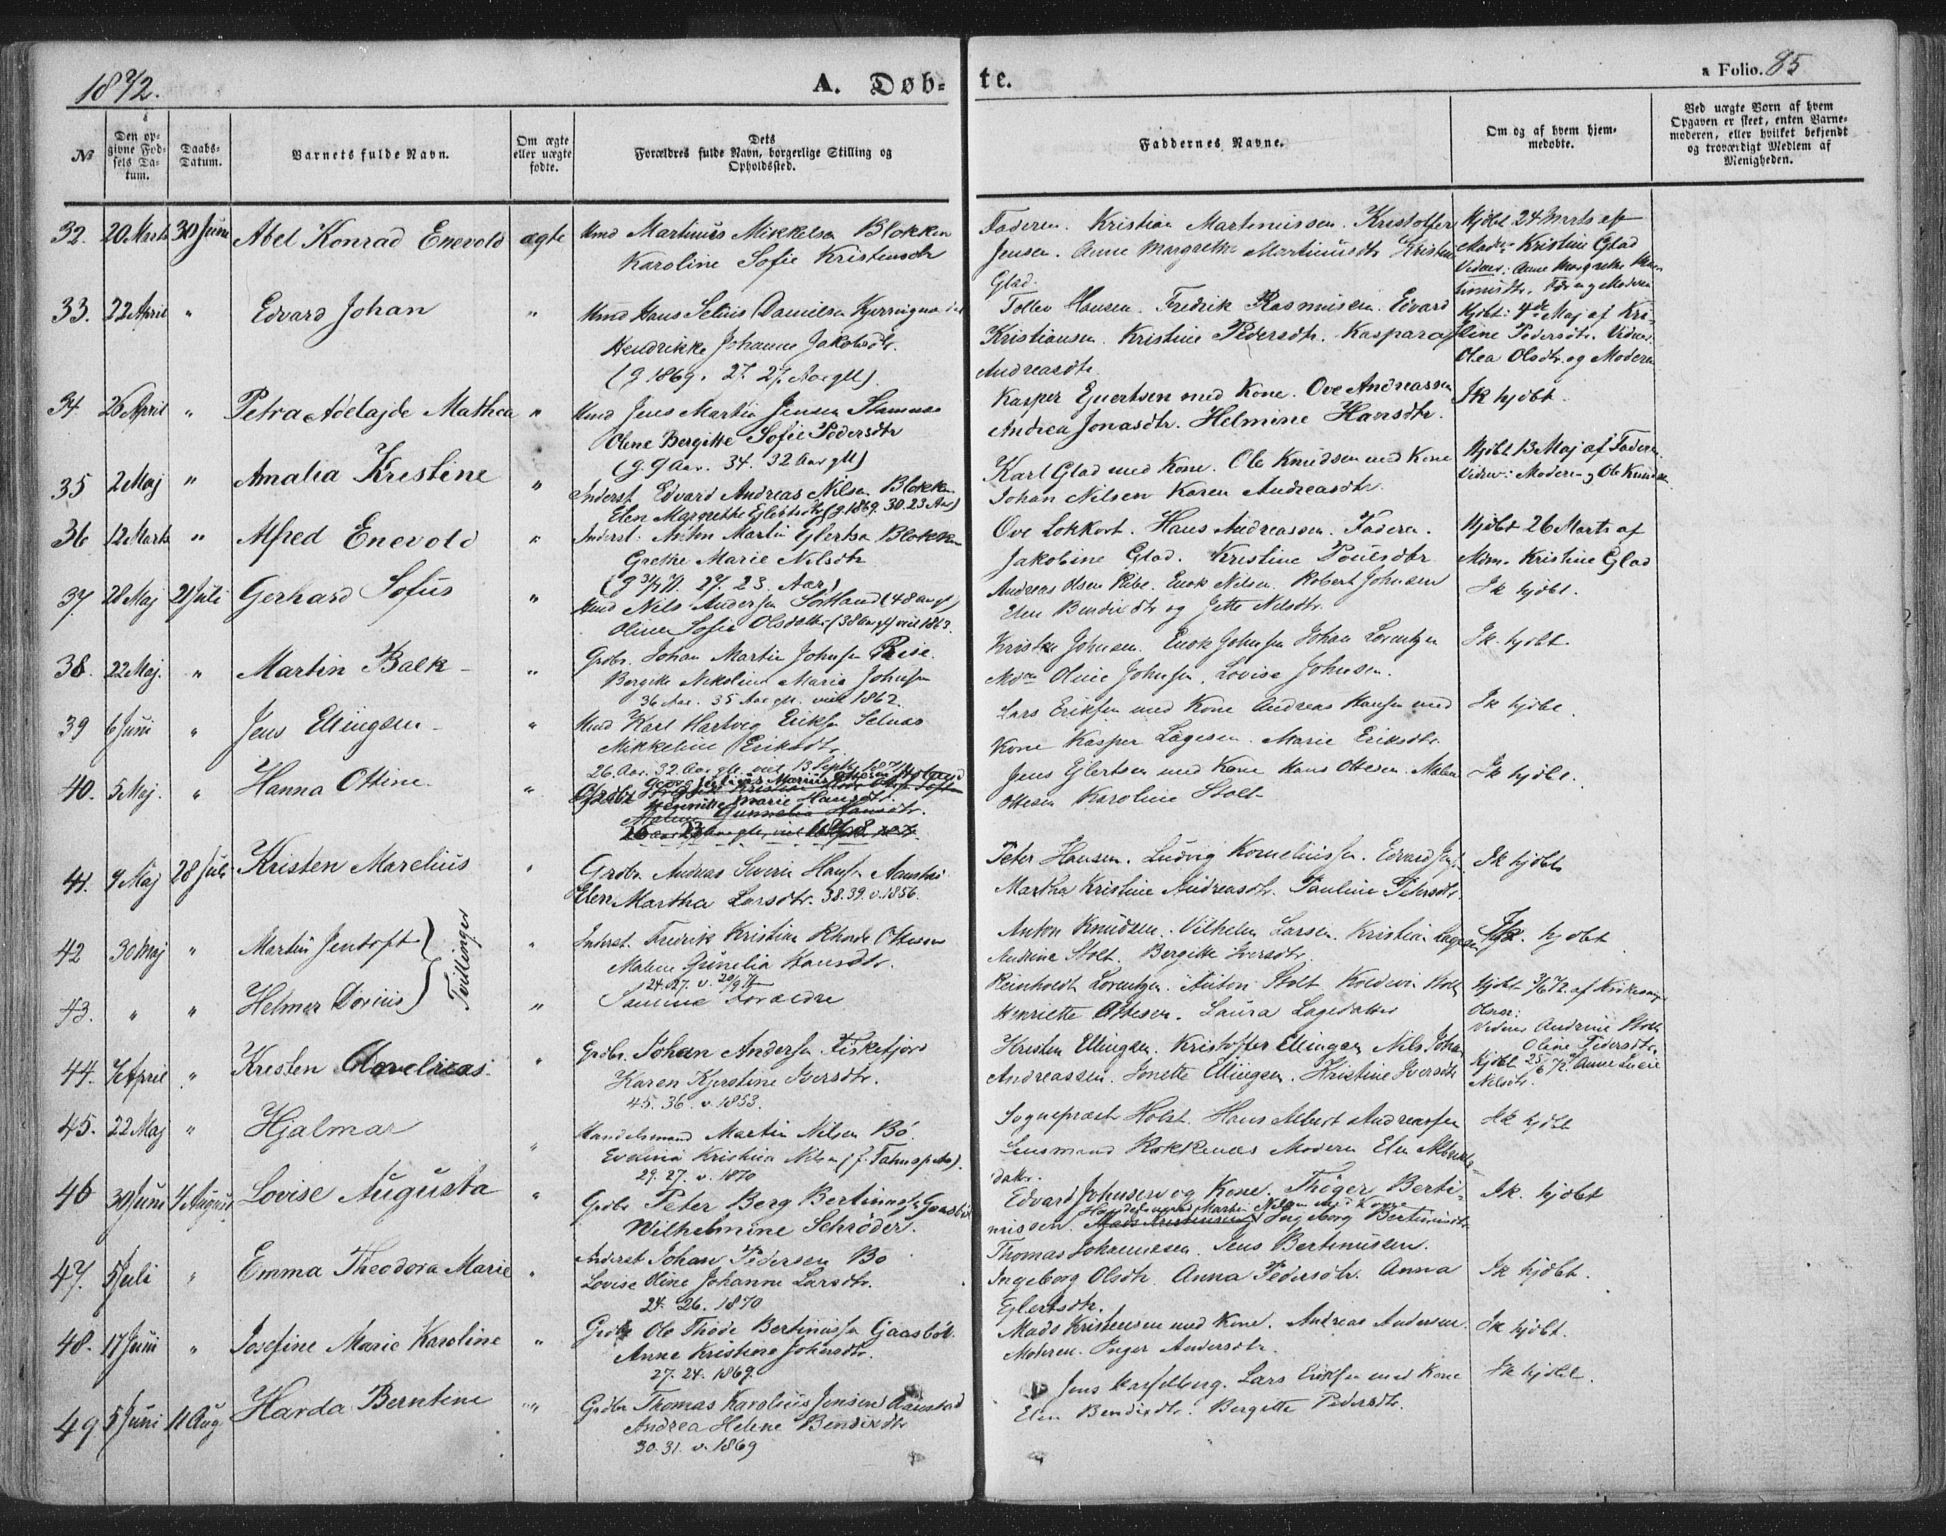 1872.
A. Døb=
te.
a Folio. 85
№
Den op-
givne Fød-
sels Da-
tum.
Daabs-
Datum.
Barnets fulde Navn.
Om ægte
eller uægte
fødte.
Dets
Forældres fulde Navn, borgerlige Stilling og
Opholdssted.
Faddernes Navne.
Om og af hvem hjem-
medøbte.
Ved uægte Børn af hvem
Opgaven er skeet, enten Barne-
moderen, eller hvilket bekjendt
og troværdigt Medlem af
Menigheden.
32. 20 Marts 30 Juni Abel Konrad Enevold ægte Hmd Martinus Mikkelsen Blokken
Karoline Sofie Kristensdtr
Faderen. Kristian Martinussen. Kristoffer
Jensen. Anne Margrethe Martinusdtr Kristine
Glad.
Hjdbt 24 Marts af
Madm Kristine Glad
Vidner: Anne Margrethe Mar-
tinusdtr. Fdr og Moderen
33. 22 April " Edvard Johan " Hmd Hans Selius Danielsen
Hendrikke Johanne Jakobsdtr.
(g 1869. 27. 27. Aar gll).
Tollev Hansen. Fredrik Rasmussen. Edvard
Kristiansen. Kristine Pedersdtr. Kaspara
Andreasdtr.
Hjdbt: 4de Maj af Kri-
stine Pedersdtr. Vidner:
Olea Olsdtr. og Moderen
34 26 April " Petra Adelajde Mathea " Hmd Jens Martin Jensen Stamnes
Olene Bergitte Sofie Pedersdtr
(g. 9 Aar. 34. 32 Aar gll)
Kasper Ejvertsen med Kone. Ove Andreassen
Andrea Jonasdtr. Helmine Hansdtr.
Ik hjdbt.
35 2 Maj " Amalia Kristine " Inderst Edvard Andreas Nilsen Blokken
Elen Margrethe Ejlertsdtr (g. 1869. 30. 23 Aar)
Karl Glad med Kone. Ole Knudsen med Kone
Johan Nilsen Karen Andreasdtr.
Hjdbt 13 Maj af Faderen
Vidner: Moderen og Ole Knudsen
36 12 Marts " Alfred Enevold " Inderst: Anton Martin Ejlertsen Blokken
Grethe Marie Nilsdtr
27 23. Aar)
Ove Lokkert. Hans Andreassen. Faderen.
Jakobine Glad. Kristine Poulsdtr
Hjdbt 26 Marts af
Mdm. Kristine Glad
37 28 Maj 21 Juli Gerhard Sofus " Hmd Nils Andersen Sortland (48 aar gl)
Oline Sofie Olsdatter (38 Aar gl) viet 1863.
Andreas Olsen Ribe. Enok Nilsen. Robert Johnsen
Elen Bendixdtr og Jette Nilsdtr.
Ik hjdbt.
38. 22 Maj. " Martin Balk " Grdbr. Johan Martin Johnsen Reise.
Bergitte Nikoline Maria Johnsen
36 Aar. 35 Aar gle. viet 1862.
Kristen Johnsen. Enok Johnsen Johan Lorentzen
Mdm Oline Johnsen, Lovise Johnsen.
Ik hjdbt.
39 6 Juni " Jens Ellingsen " Hmd Karl Hartvig Eriksen Selnæs
Mikkeline Eriksdtr.
26 Aar. 32 Aar gle. viet 13 Septr 1871
Lars Eriksen med Kone Andreas Hansen med
Kone Kasper Lagesen. Marie Eriksdtr.
Ik hjdbt.
40. 5 Maj. " Hanna Ottine " Grdbr
Henriette Marie Hansdtr.
Malene Gunnelia Hansdtr.
Jens Ejlertsen med Kone Hans Ottesen. Malene
Ottesen Karoline Stolt
Ik hjdbt.
41. 9 Maj 28 Juli Kristen Marelius " Grdbr. Andreas Sverin Hansen
Elen Martha Larsdtr. 38. 39. v. 1856.
Peter Hansen. Ludvig Korneliussen. Edvard
Martha Kristine Andreasdtr. Pauline Petersdtr.
Ik hjdbt
42 30 Maj " Martin Jentoft Tvillinger " Inderst. Fredrik Kristian Rhode Ottesen
Malene Gunelia Hansdtr.
24. 27. v. 20/9 71
Anton Knudsen. Vilhelm Larsen. Kristian Lagesen
Andrine Stolt. Bergitte Iversdtr.
Ik. hjdbt
43. " " Helmer Dorius " Samme Forældre
Reinholdt Lorentzen. Anton Stolt
Henriette Ottesen. Laura Lagedatter
Hjdbt
Olsen:
Vidner Andrine Stolt
Oline Pedersdtr.
44. 7 April " Kristen Andreas " Grdbr. Johan Andersen Fiskefjord
Karen Kjerstine Iversdtr.
45. 36. v. 1853.
Kristen Ellingsen. Kristoffer Ellingsen Nils Johan
Andreassen. Jonette Ellingsen. Kristine Iversdtr
Hjdbt 25/6 72 af Anne Lucie
Nilsdtr.
45. 22 Maj " Hjalmar " Handelsmand Martin Nilsen Bö.
Kristina Nilsen
29. 27. v. 1870
Sogneprest Holst. Hans Albert Andreassen
Lensmand Rokkenes Moderen Elen
datter.
Ik hjdbt
46 30 Juni 4 August Lovise Augusta " Grdbr Peter Berg Bertinussen Gaasböl
Wilhelmine Schröder.
Edvard Johnsen og Kone. Thöger Berti-
nussen. Handelsmand Martin Nilsen og Kone Ingeborg Bertinusdtr
Ik. hjdbt
47. 5 Juli " Emma Theodora Marie " Inderst Johan Pedersen Bö
Lovise Oline Johanne Larsdtr.
24. 26. 1870
Thomas Johannesen. Jens Bertinussen.
Ingeborg Olsdtr. Anna Pedersdtr. Anna
Ejlertsdtr.
Ik hjdbt.
48. 17 Juni " Josefine Marie Karoline " Grdbr Ole Thode Bertinussen Gaasböl.
Anne Kristine Johnsdtr.
27. 24. 1869.
Mads Kristensen med Kone. Andreas Andersen.
Moderen. Inger Andersdtr.
Ik hjdbt.
49 5 Juni 11 Aug Harda Berntine " Grdbr Thomas Karolius Jensen
Andrea Helene Bendixdtr
30. 31. v. 1869
Jens Hasselberg. Lars Eriksen med Kone
Elen Bendixdtr. Bergitte Pedersdtr.
Ik hjdbt.